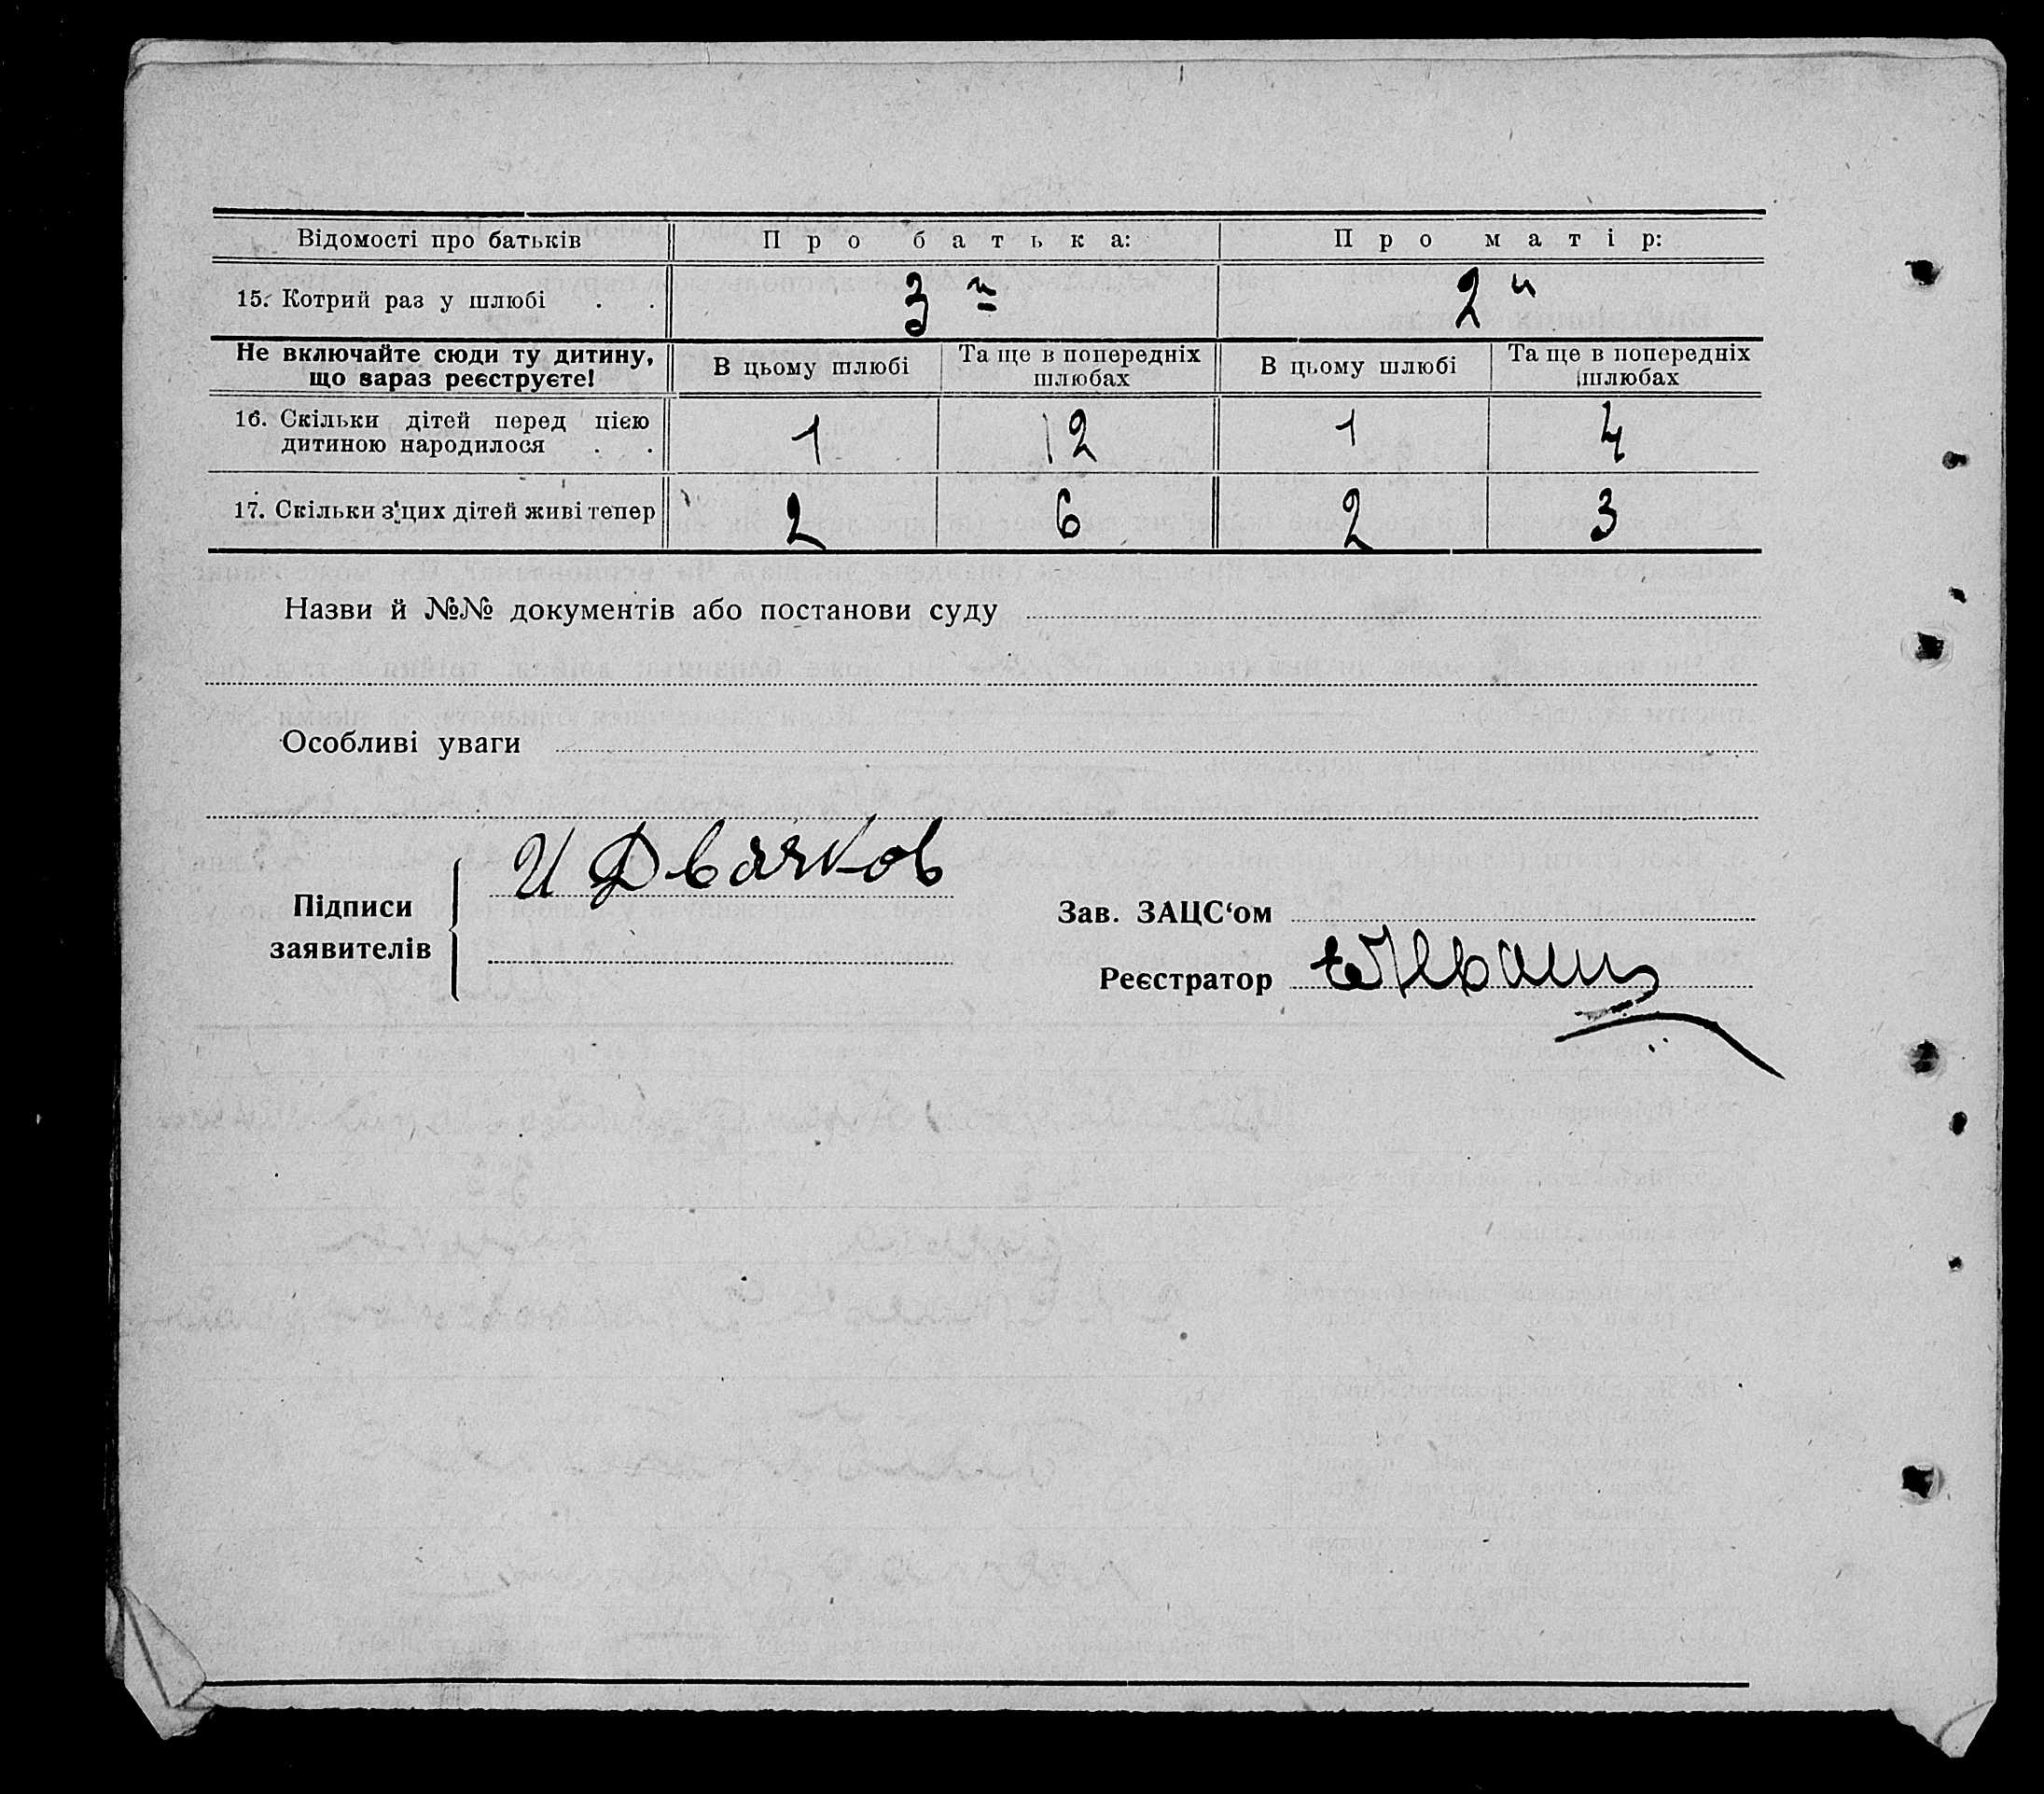 Відомості про батьків Про батька: Про матір:
15. Котрий раз у шлюбі . . 3й 2й
Не включайте сюди ту дитину, що зараз реєструєте! В цьому шлюбі Та ще в попередніх шлюбах В цьому шлюбі Та ще в попередніх шлюбах
16. Скільки дітей перед цією
дитиною народилося . . 1 12 1 4
17. Скільки з цих дітей живі тепер 2 6 2 3
Назви й №№ документів або постанови суду
Особливі уваги
И Двячков
Підписи
заявителів
Зав. ЗАЦС‘ом
Реєстратор